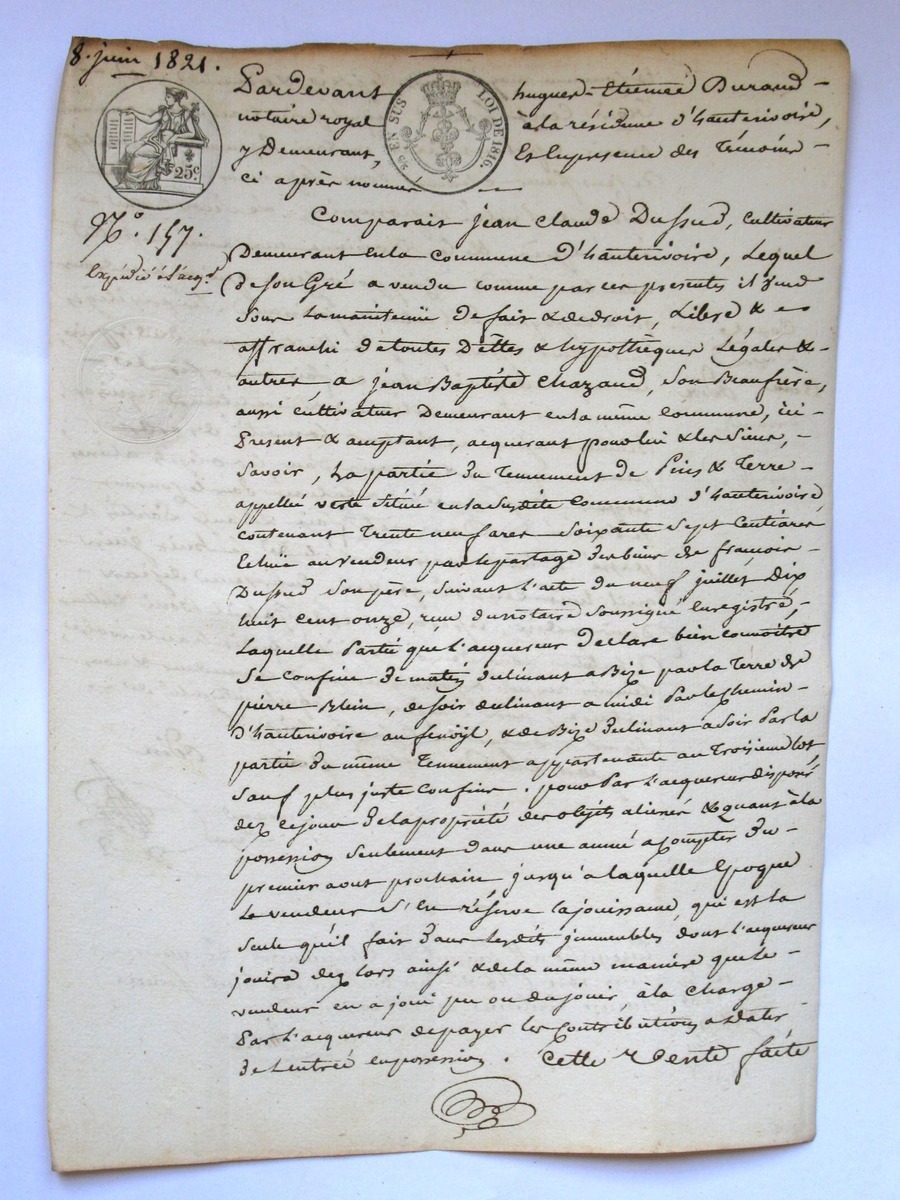 8. juin 1821.
Pardevant hugues-Etienne Durand-
notaire royal à la résidence d'hauterivoire,
y Demeurant, Et En presence des Témoins-
ci après nommés
EN SUS
LOI DE 1816.
25c
N.° 157.
Expédié à l'acq.r
Comparait jean Claude Dussud, Cultivateur
Demeurant en la commune D'hauterivoire, Lequel
de son Gré a vendu comme par ces presentes il vend
sous la maintenüe de fait & de droit, Libre & e-
affranchi de toutes Dêttes & hypothèques Légales &-
autres a jean Baptiste Chazaud, son Beaufrère,
aussi cultivateur Demeurant en la même Commune, ici-
Present & acceptant, acquerant pour lui & les siens,-
savoir, La partie du Tennement de Pins & Terre-
appellé verte située en la susdite Commune d'hauterivoire
contenant Trente neuf ares soixante sept Centiares
Echüe au vendeur par le partage des biens de françois-
Dussud son père, suivant l'acte du neuf juillet Dix
huit cent onze, reçu du notaire soussigné Enregistré,-
Laquelle Partie que l'acquereur Declare bien connoitre
se confine de matin declinant a Bize par la Terre de
pierre Blein, de soir declinant a midi Par le Chemin-
D'hauterivoire au fenoÿl, & de Bize declinant a soir Par la
partie du même Tennement appartenante au Troisieme lot
sauf plus juste confins. pour Par l'acquereur disposer
dez ce jour de la propriété des objets alienés & quant à la
possession seulement dans une année a Compter du-
premier aout prochain jusqu'a laquelle Epoque
Le vendeur s'En réserve la jouissance, qui est la
seule qu'il fait dans lesdits immeubles dont l'acquereur
jouira dez lors ainsi & de la même manière que le-
vendeur en a joui pu ou du jouir, à la charge-
Par l'acquereur de payer les Contributions a dater
de l'entrée en possession. Cette Vente faite